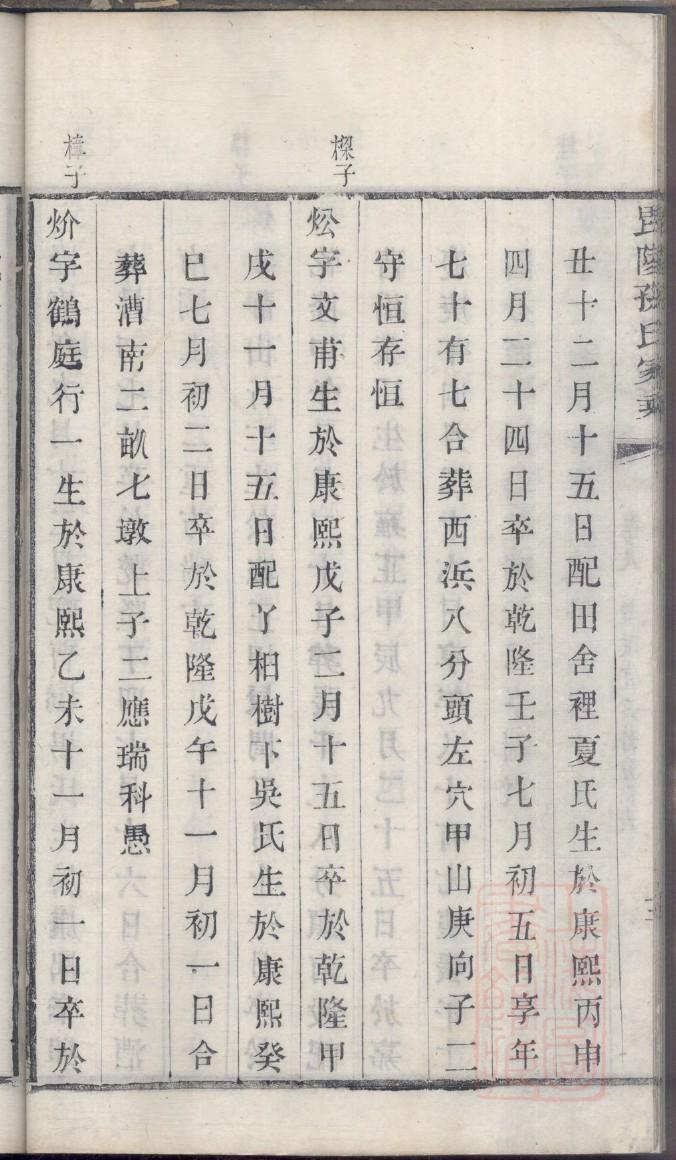 毘陵孫氏家乘
丑十二月十五日配田舍裡夏氏生於康熙丙申
四月二十四日卒於乾隆壬子七月初五日享年
七十有七合葬西浜八分頭左穴甲山庚向子二
守恒存恒
樑子
炂字文甫生於康熙戊子二月十五日卒於乾隆甲
戌十一月十五日配丫桕樹下吳氏生於康熙癸
巳七月初二日卒於乾隆戊午十一月初一日合
葬漕南二畝七墩上子二應瑞科愚
樟子
炌字鶴庭行一生於康熙乙未十一月初一日卒於